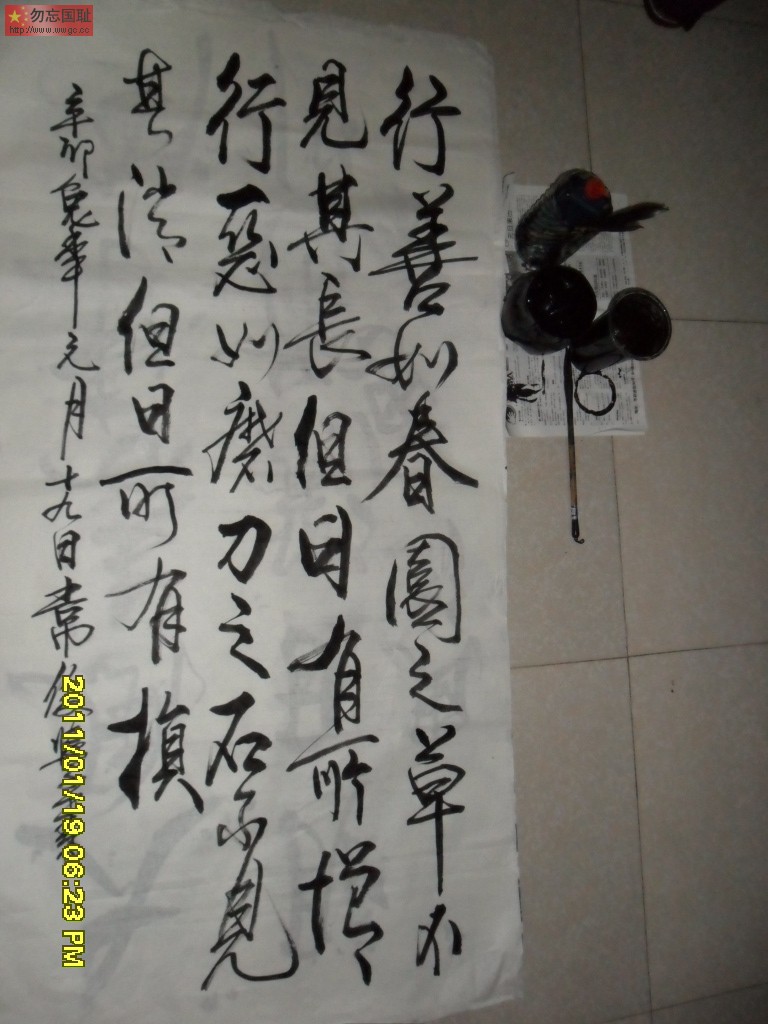 行善如春園之草不
見其長但日有所增
行惡如磨刀之石不見
其消但日所有損
辛卯兔年元月十九日書
勿忘国耻
http://www.wwgc.co
2011/01/19 06:23 PM